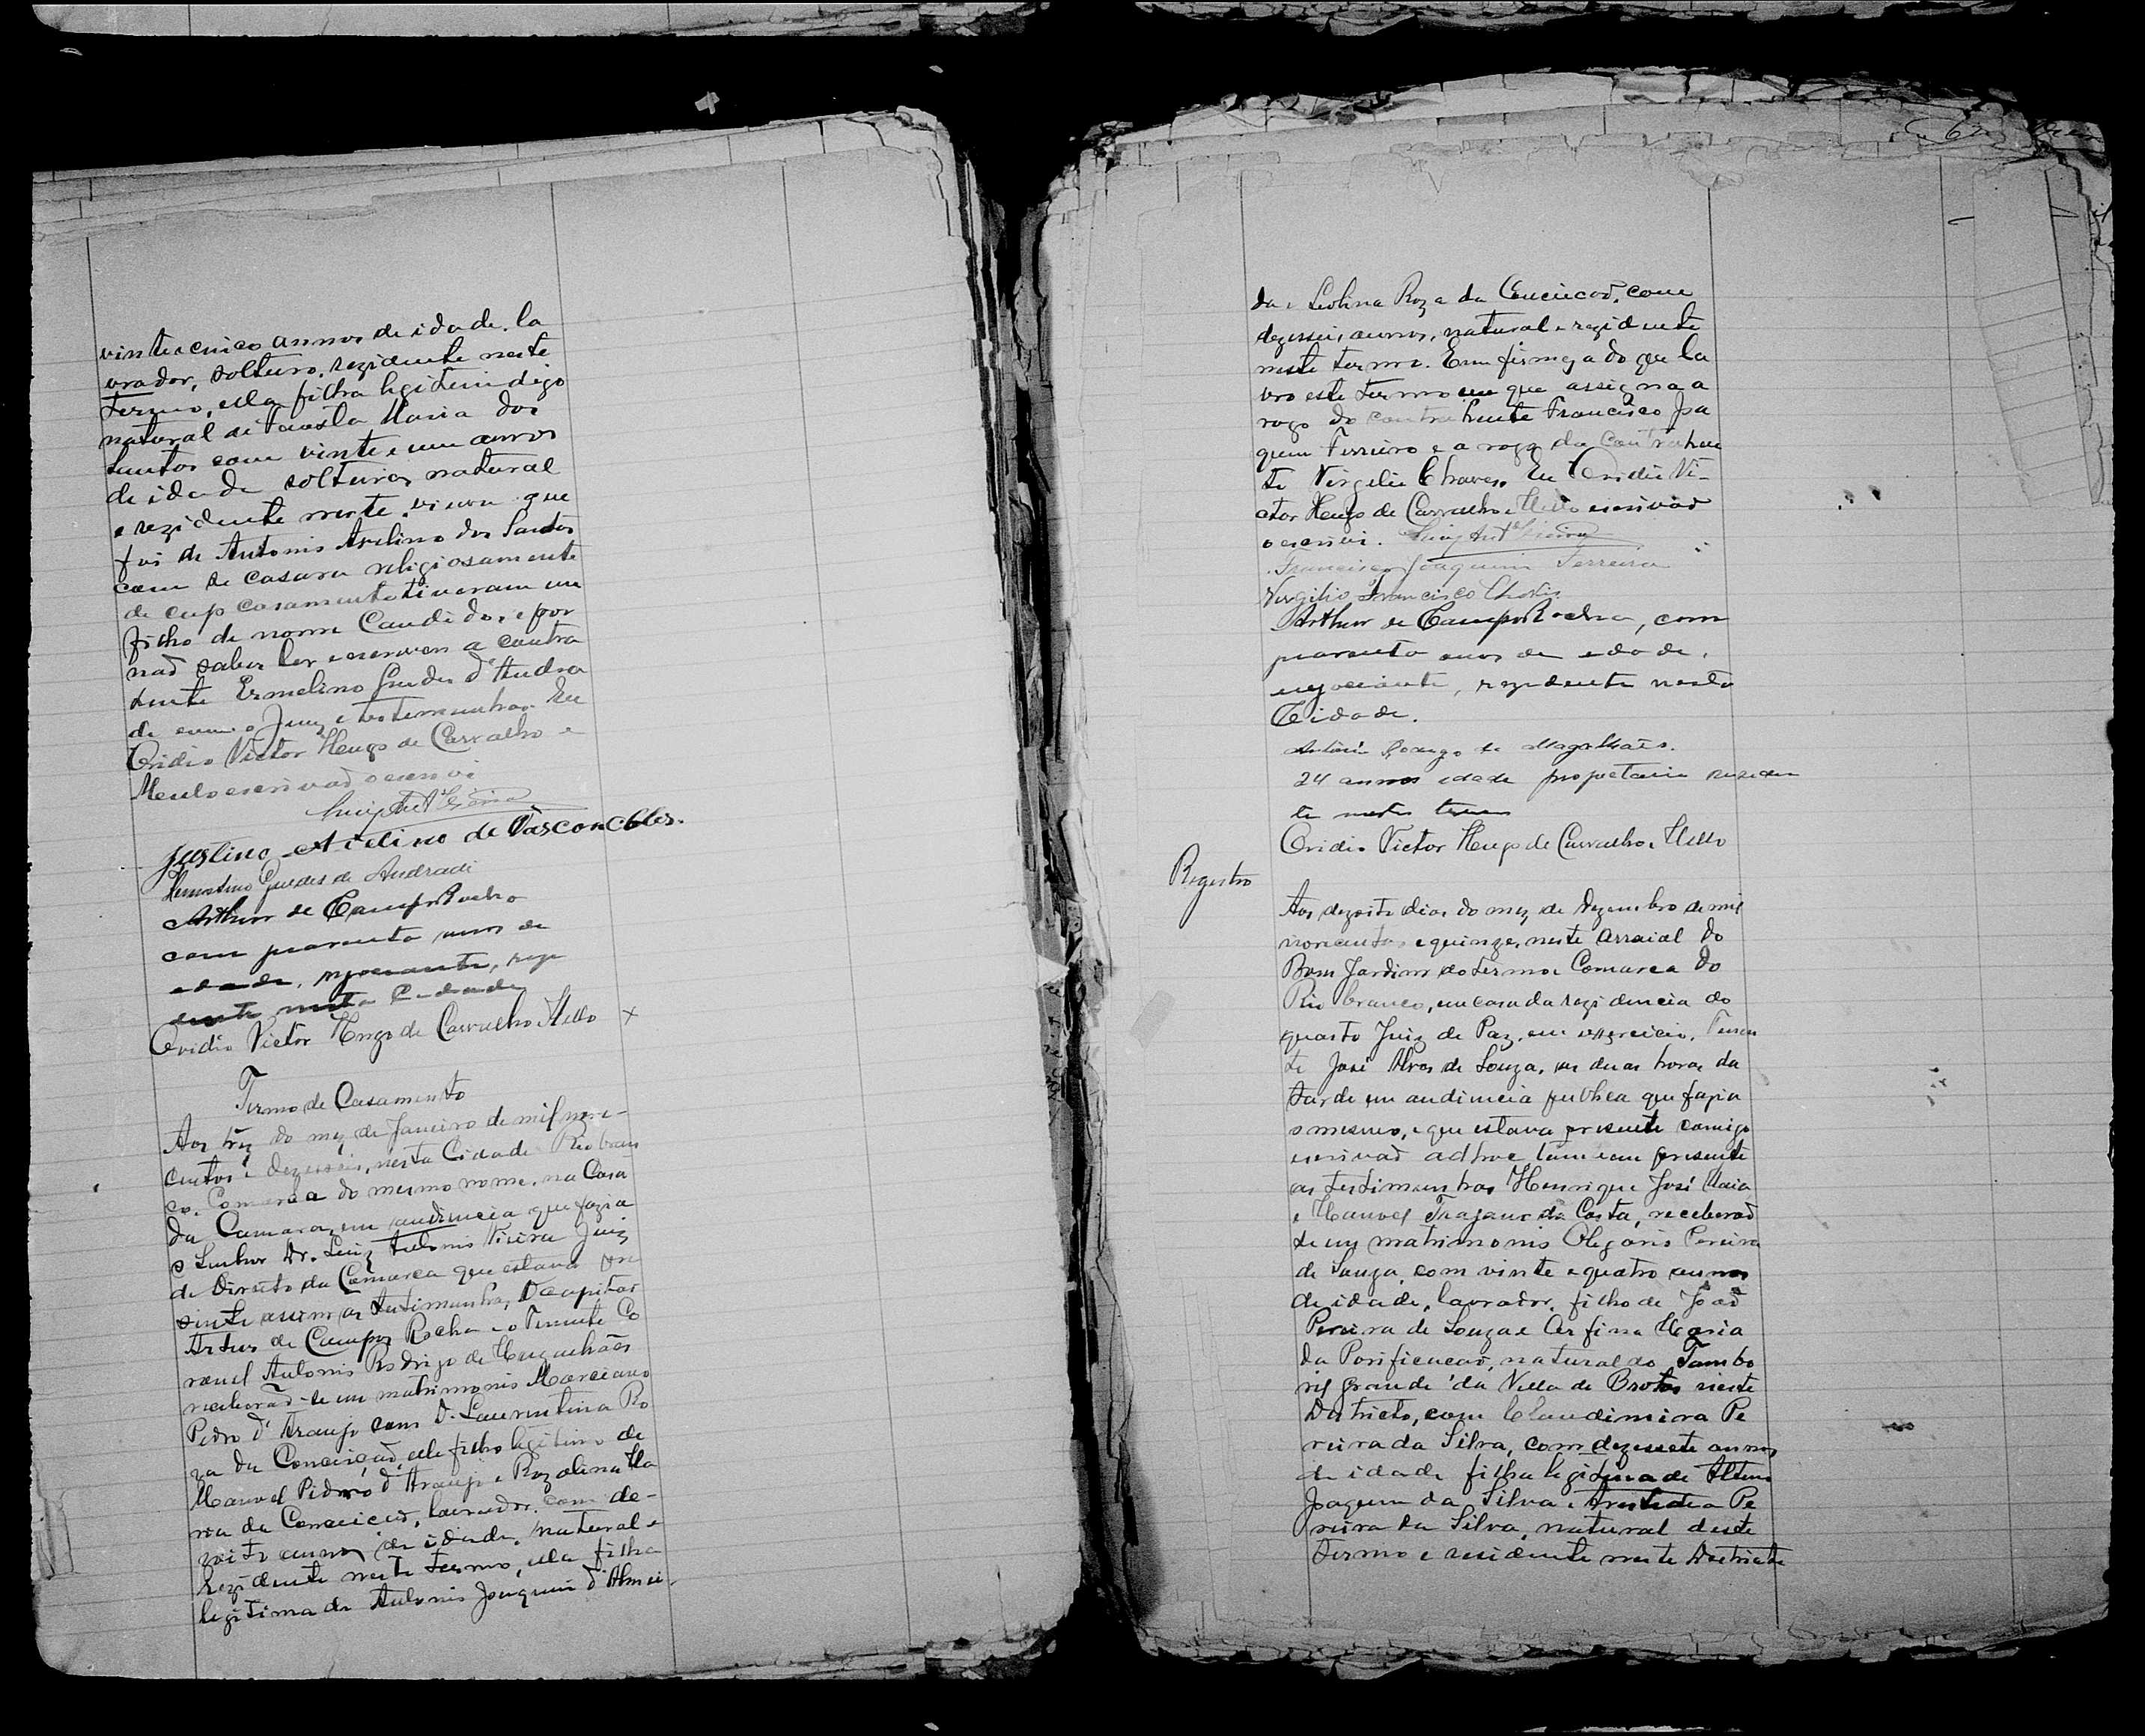 vinte e cinco annos de idade, la
vrador, solteiro, rezidente neste
termo, ella filha legitim digo
natural de Fausta Maria dos
Santos com vinte e um annos
de idade solteira, natural
e rezidente neste, viuva que
foi de Antonio Avelino dos Santos
com se casara religiosamente
de cujo casamento tiveram um
filho de nome Candido, e por
naõ saber ler e escrever a contra
dente Ermelino Guedes d'Andra
de com o Juiz e testemunhas. Eu
Ovidio Victor Hugo de Carvalho e
Mello escrivaõ o escrevi
Luiz Ant.º Vieira
Justino Avelino de Vasconcellos.
Guedes de Andrade
Arthur de Campos Rocha
com quarenta annos de
edade, negociante, rezi
dente nesta Cidade
Ovidio Victor Hugo de Carvalho Mello x
Termo de Casamento
Aos trez do mez de Janeiro de mil nove-
centos e dezesseis, nesta Cidade Rio bran
co, Comarca do mesmo nome, na Casa
da Camara, em audiencia que fazia
o Senhor Dr. Luiz Antonio Vieira Juiz
de Direito da Comarca que estava pre
sente assim as testimunhas, Capitaõ
Artur de Campos Rocha e o Tenente Co
ronel Antonio Rodrigo de Magalhães
receberaõ-se em matrimonio Marciano
Pedro d'Araujo com D. Laurentina Ro
za da Conceiçaõ, elle filho legitimo de
Manoel Pidro d'Araujo e Rozalina Ma
ria da Conceicaõ, lavrador, com de-
zoito annos de idade, natural e
rezidente neste termo, ella filha
legitima de Antonio Joaquim d'Almei-
da e Leolina Roza da Conceicaõ, com
dezesseis annos, natural e rezidente
neste termo. Em firmeza do que la
vro este termo em que assigna a
rogo do contrahente Francisco Joa
quim Ferreira e a rogo da Contrahen
te Virgilio Chaves. Eu Ovidio Vi-
ctor Hugo de Carvalho e Mello escrivaõ
o escrevi. Luiz Ant.º Vieira
Francisco Joaquim Ferreira
Virgilio Francisco Chaves
Arthur de Campos Rocha, com
quarenta annos de edade,
negociante, rezidente nesta
Cidade.
Antonio Rodrigo de Magalhães.
24 annos edade propetario residen
te nestes termo
Ovidio Victor Hugo de Carvalho e Mello
Registro
Aos dezoito dias do mez de Dezembro de mil
novecentos e quinze, neste Arraial do
Bom Jardim do termo e Comarca do
Rio branco, em casa da rezidencia do
quarto Juiz de Paz, em exercicio, Tenen
te José Alves de Souza, as duas horas da
tarde em audiencia publica que fazia
o mesmo, e que estava presente comigo
escrivaõ adhoc tambem presente
as testimunhas Henrique José Maia
e Manoel Trajano da Costa, receberaõ
se em matrimonio Olegario Pereira
de Souza, com vinte e quatro annos
de idade, lavrador, filho de Joaõ
Pereira de Souza e Maria
da Porificacaõ, natural do Tambo
ril grande da Villa de Brotas neste
Districto, com Claudimira Pe
reira da Silva, com dezesete annos
de idade filha legitima de
Joaquim da Silva e Pe
reira da Silva, natural deste
termo e residente neste Destricto